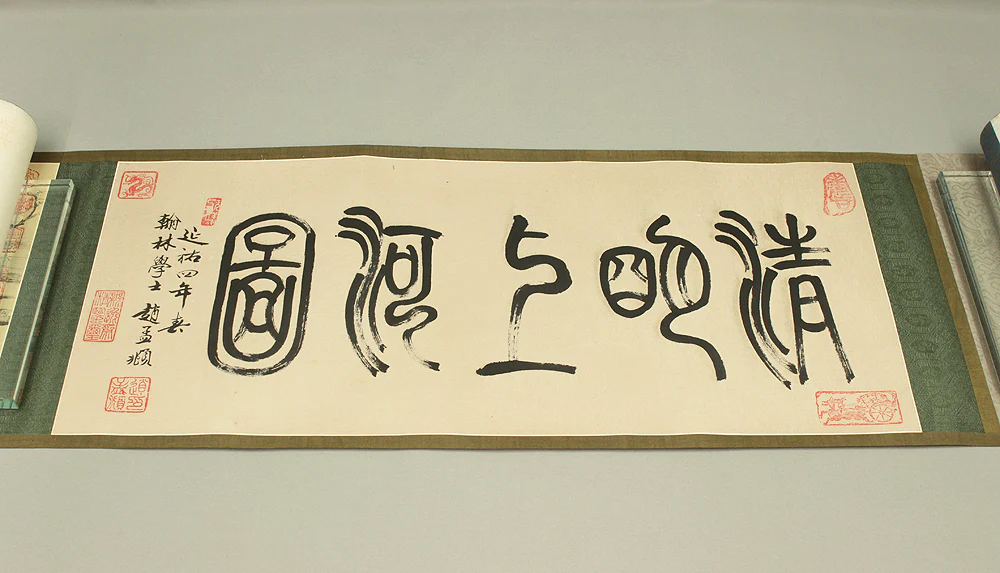 清明上河圖
延祐四年春
翰林學士趙孟頫